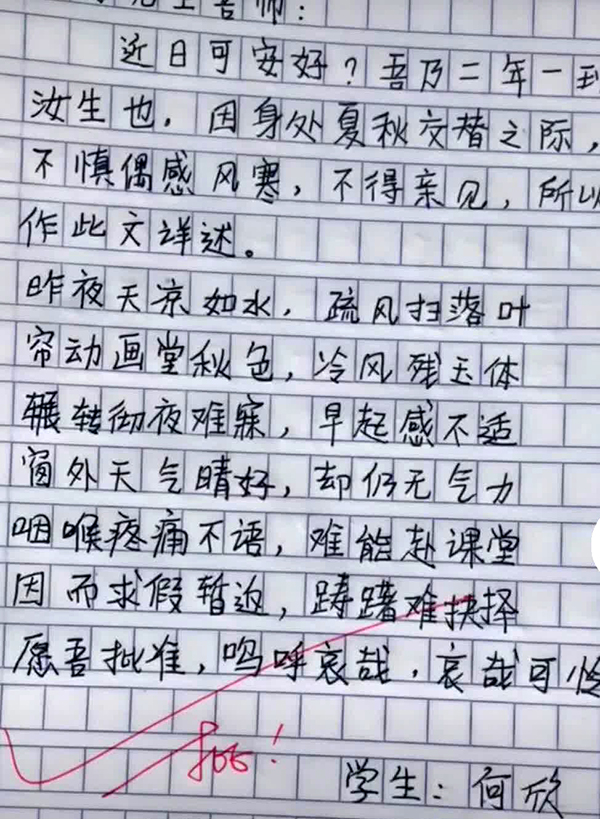 师：
近日可安好？吾乃二年一
汝生也，因身处夏秋交替之际，
不慎偶感风寒，不得亲见，所以
作此文详述。
昨夜天凉如水，疏风扫落叶
帘动画堂秋色，冷风残玉体
辗转彻夜难寐，早起感不适
窗外天气晴好，却仍无气力
咽喉疼痛不语，难能赴课堂
因而求假暂返，踌躇难抉择
愿吾批准，呜呼哀哉，哀哉可怜
批！
学生：何欣